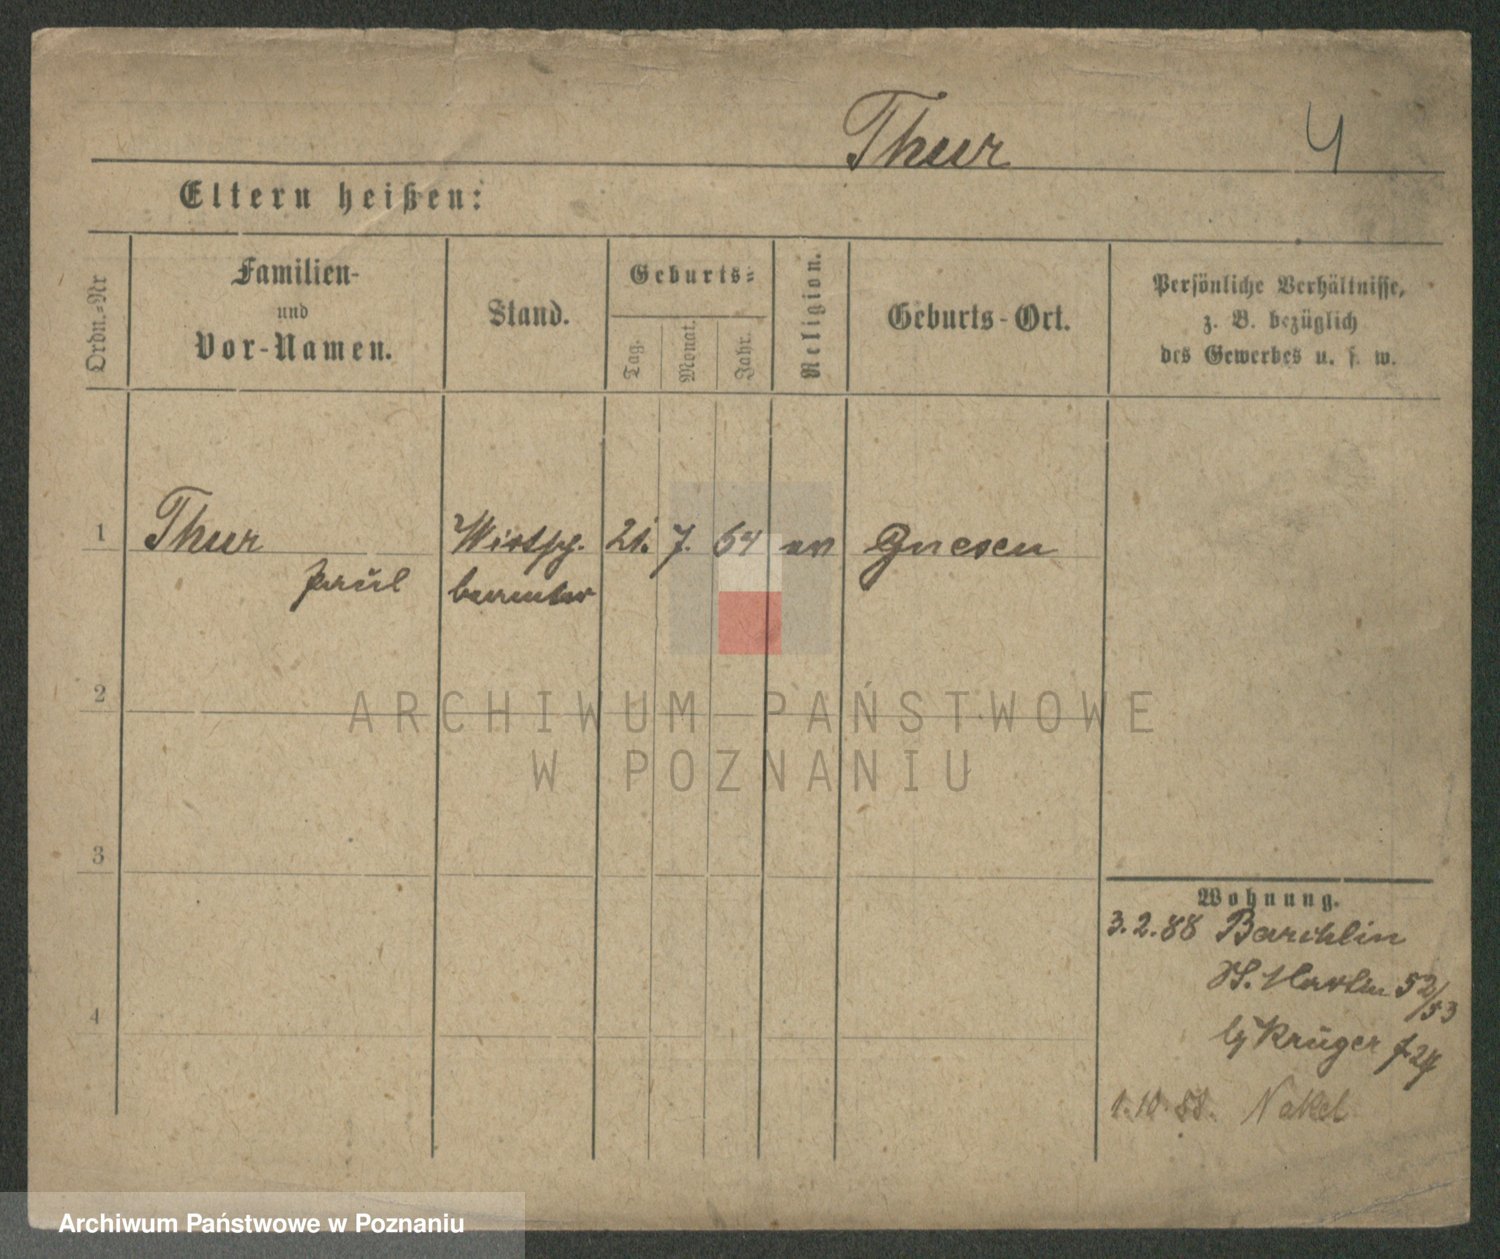 Thur 4
Eltern heißen:
Ordn.-Nr
Familien-
und
Vor-Namen.
Stand.
Geburts-
Tag.
Monat.
Jahr.
Religion.
Geburts-Ort.
Persönliche Verhältnisse,
z. B. bezüglich
des Gewerbes u. s. w.
1 Thur Wirtsch. 21. 7. 64 ev Gnesen
Paul beamter
2
ARCHIWUM PAŃSTWOWE
W POZNANIU
3
Wohnung.
3.2.88 Barchlin
St. Martin 52/53
Krüger
4
1.10.88. Nakel
Archiwum Państwowe w Poznaniu